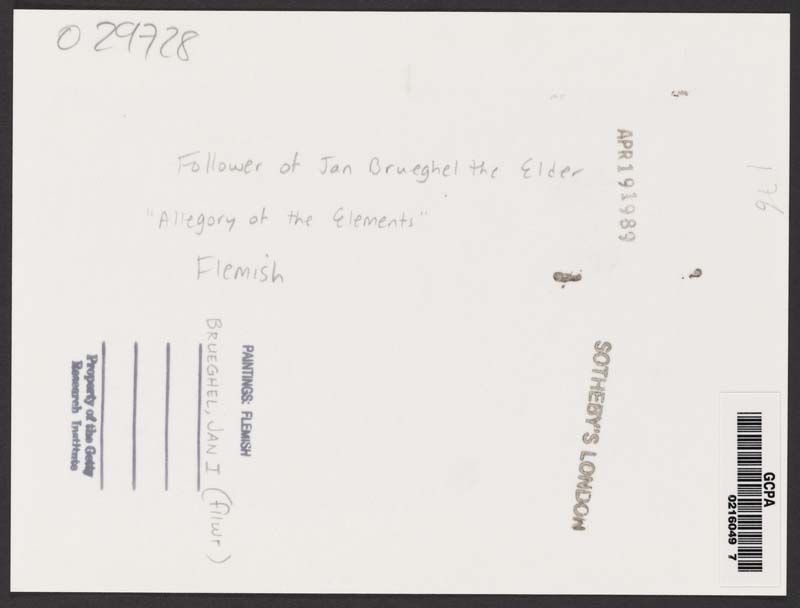 O 29728
Follower of Jan Brueghel the Elder
"Allegory of the Elements"
Flemish
APR 19 1989
176
SOTHEBY'S LONDON
PAINTINGS: FLEMISH
BRUEGHEL, JAN I (fllwr)
Property of the Getty
Research Institute
GCPA
0216049 7